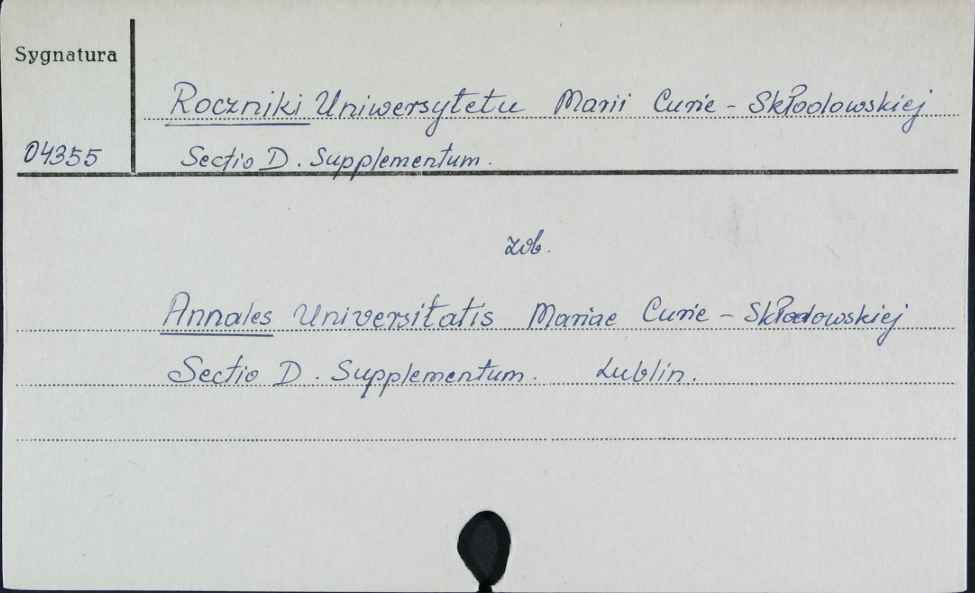 Sygnatura
Roczniki Uniwersytetu Marii Curie - Skłodowskiej
04355 Sectio D. Supplementum.
zob.
Annales Universitatis Mariae Curie - Skłodowskiej
Sectio D. Supplementum. Lublin.